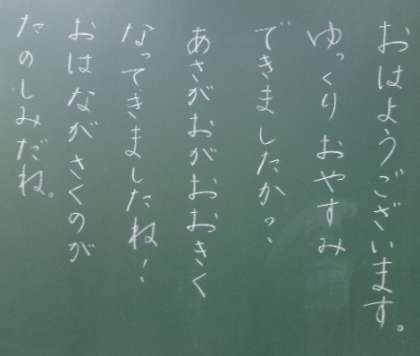 おはようございます。
ゆっくりおやすみ
できましたか?
あさがおがおおきく
なってきましたね!
おはながさくのが
たのしみだね。